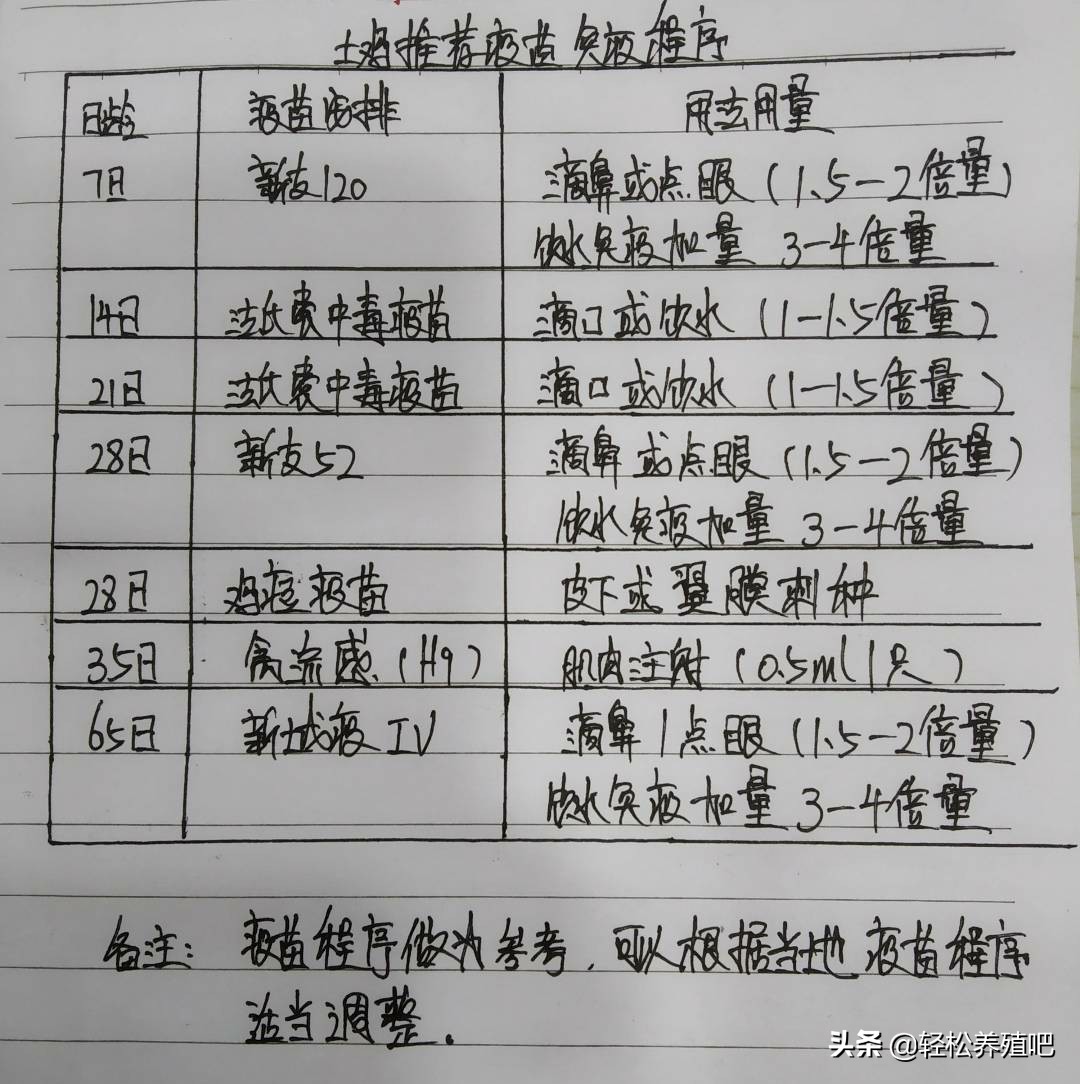 土鸡推荐疫苗免疫程序
日龄 疫苗安排 用法用量
7日 新支120 滴鼻或点眼(1.5-2倍量)
饮水免疫加量 3-4倍量
14日 法氏囊中毒疫苗 滴口或饮水(1-1.5倍量)
21日 法氏囊中毒疫苗 滴口或饮水(1-1.5倍量)
28日 新支52 滴鼻或点眼(1.5-2倍量)
饮水免疫加量 3-4倍量
28日 鸡痘疫苗 皮下或翼膜刺种
35日 禽流感(H9) 肌肉注射(0.5ml/只)
65日 新城疫IV 滴鼻/点眼(1.5-2倍量)
饮水免疫加量 3-4倍量
备注: 疫苗程序做为参考,可以根据当地疫苗程序
适当调整.
头条 @轻松养殖吧